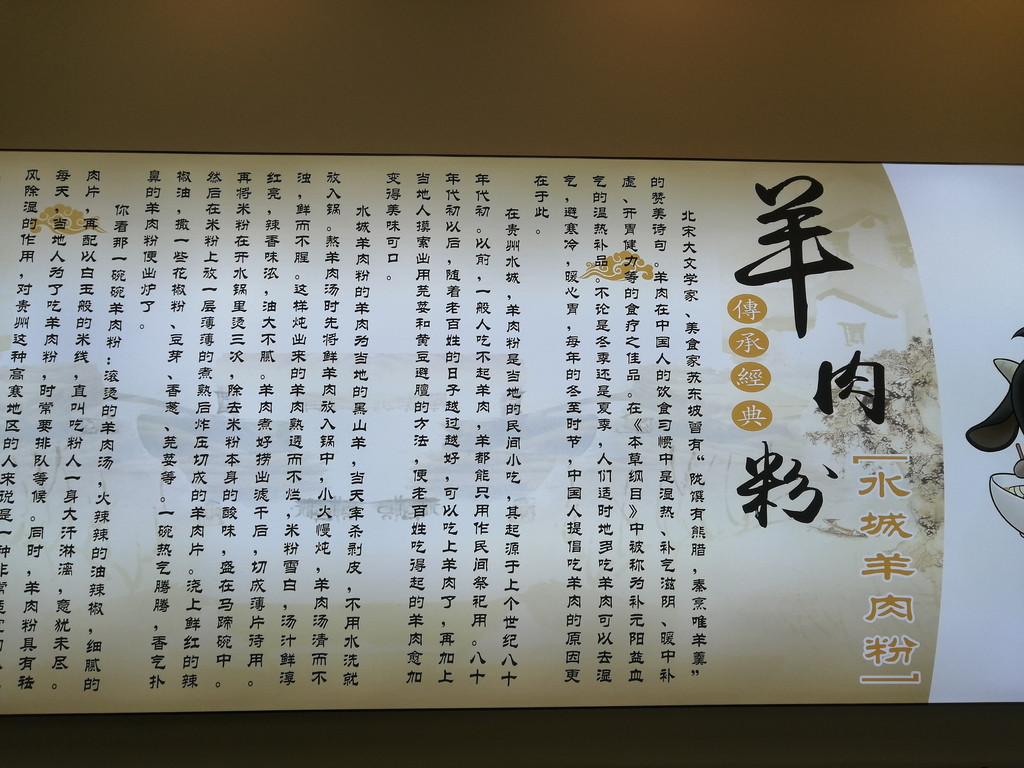 [水城羊肉粉]
羊肉粉
傳承經典
北宋大文学家、美食家苏东坡曾有“陇馔有熊腊，秦烹唯羊羹”
的赞美诗句。羊肉在中国人的饮食习惯中是温热、补气滋阴、暖中补
虚、开胃健力等的食疗之佳品。在《本草纲目》中被称为补元阳益血
气的温热补品。不论是冬季还是夏季，人们适时地多吃羊肉可以去湿
气，避寒冷，暖心胃，每年的冬至时节，中国人提倡吃羊肉的原因更
在于此。
在贵州水城，羊肉粉是当地的民间小吃，其起源于上个世纪八十
年代初。以前，一般人吃不起羊肉，羊都能只用作民间祭祀用。八十
年代初以后，随着老百姓的日子越过越好，可以吃上羊肉了，再加上
当地人摸索出用芫荽和黄豆避膻的方法，使老百姓吃得起的羊肉愈加
变得美味可口。
水城羊肉粉的羊肉为当地的黑山羊，当天宰杀剥皮，不用水洗就
放入锅。熬羊肉汤时先将鲜羊肉放入锅中，小火慢炖，羊肉汤清而不
浊，鲜而不腥。这样炖出来的羊肉熟透而不烂，米粉雪白，汤汁鲜淳
红亮，辣香味浓，油大不腻。羊肉煮好捞出滤干后，切成薄片待用。
再将米粉在开水锅里烫三次，除去米粉本身的酸味，盛在马蹄碗中。
然后在米粉上放一层薄薄的煮熟后炸压切成的羊肉片。浇上鲜红的辣
椒油，撒一些花椒粉、豆芽、香葱、芫荽等。一碗热气腾腾，香气扑
鼻的羊肉粉便出炉了。
你看那一碗碗羊肉粉：滚烫的羊肉汤，火辣辣的油辣椒，细腻的
肉片，再配以白玉般的米线，直叫吃粉人一身大汗淋漓，意犹未尽。
每天，当地人为了吃羊肉粉，时常要排队等候。同时，羊肉粉具有祛
风除湿的作用，对贵州这种高寒地区的人来说是一种非常